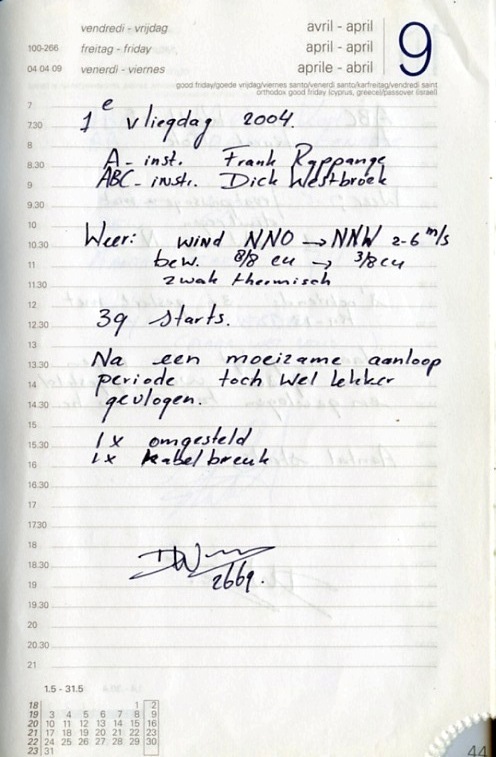 vendredi - vrijdag avril - april 9
100-266 freitag - friday april - april
04 04 09 venerdi - viernes aprile - abril
good friday/goede vrijdag/viernes santo/venerdi santo/karfreitag/vendredi saint
orthodox good friday (cyprus, greece)/passover (israel)
7
7.30 1e vliegdag 2004.
8
8.30 A - inst. Frank Rappange
9 ABC - instr. Dick Westbroek
9.30
10
10.30 Weer: wind NNO → NNW 2-6 m/s
11 bew. 8/8 cu → 3/8 cu
11.30 zwak thermisch
12
12.30 39 starts.
13
13.30 Na een moeizame aanloop
14 periode toch wel lekker
14.30 gevlogen.
15
15.30 1x omgesteld
16 1x kabelbreuk
16.30
17
17.30
18
18.30
19 2669.
19.30
20
20.30
21
1.5 - 31.5
18 1 2
19 3 4 5 6 7 8 9
20 10 11 12 13 14 15 16
21 17 18 19 20 21 22 23
22 24 25 26 27 28 29 30
23 31
44